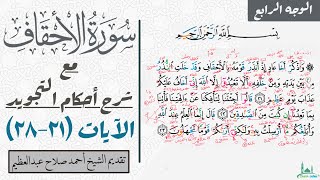 الوجه الرابع
سُورَةُ الأَحْقَافِ
مع
شرح أحكام التجويد
الآيات (٢١-٢٨)
تقديم الشيخ أحمد صلاح عبدالعظيم
بِسْمِ اللَّهِ الرَّحْمَٰنِ الرَّحِيمِ
۞ وَاذْكُرْ أَخَا عَادٍ إِذْ أَنذَرَ قَوْمَهُ بِالْأَحْقَافِ وَقَدْ خَلَتِ النُّذُرُ
مِن بَيْنِ يَدَيْهِ وَمِنْ خَلْفِهِ أَلَّا تَعْبُدُوا إِلَّا اللَّهَ إِنِّي أَخَافُ عَلَيْكُمْ
عَذَابَ يَوْمٍ عَظِيمٍ ٢١ قَالُوا أَجِئْتَنَا لِتَأْفِكَنَا عَنْ آلِهَتِنَا فَأْتِنَا
بِمَا تَعِدُنَا إِن كُنتَ مِنَ الصَّادِقِينَ ٢٢ قَالَ إِنَّمَا الْعِلْمُ عِندَ اللَّهِ
وَأُبَلِّغُكُم مَّا أُرْسِلْتُ بِهِ وَلَٰكِنِّي أَرَاكُمْ قَوْمًا تَجْهَلُونَ ٢٣